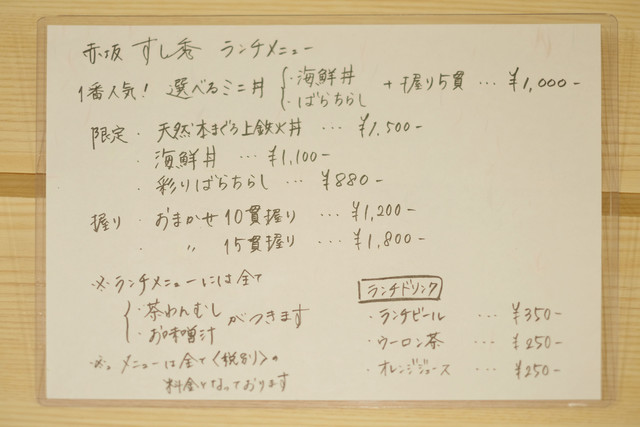 赤坂 すし秀 ランチメニュー
1番人気! 選べるミニ丼 { ・海鮮丼 ・ばらちらし + 握り5貫 … ¥1,000-
限定 ・ 天然本まぐろ上鉄火丼 … ¥1,500-
・ 海鮮丼 … ¥1,100-
・ 彩りばらちらし … ¥880-
握り ・ おまかせ 10貫握り … ¥1,200-
・ 〃 15貫握り … ¥1,800-
※ランチメニューには全て
{ ・茶わんむし ・お味噌汁 がつきます
※。メニューは全て〈税別〉の
料金となっております
ランチドリンク
・ランチビール … ¥350-
・ウーロン茶 … ¥250-
・オレンジジュース … ¥250-